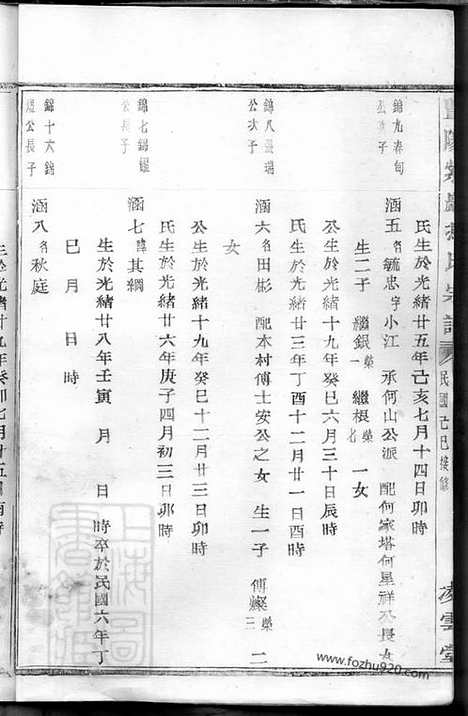 氏宗譜
民國己巳接修
凌雲堂
氏生於光緒廿五年己亥七月十四日卯時
錦九泰甸公次子
涵五名毓忠字小江 承何山公派 配何家塔何星祥公長女
生二子 繼銀榮 繼根榮 一女
公生於光緒十九年癸巳六月三十日辰時
氏生於光緒廿三年丁酉十二月廿一日酉時
公次子
涵六名田彬 配本村傅士安公之女 生一子 傅燦榮三 二
女
公生於光緒十九年癸巳十二月廿三日卯時
氏生於光緒廿六年庚子四月初三日卯時
錦七錦
公長子
涵七諱其綱
生於光緒廿八年壬寅 月 日 時卒於民國六年丁
巳 月 日 時
錦十六錦
公長子
涵八名秋庭
光緒廿九年癸卯七月十五日酉時
上海圖書館藏
www.fozhu920.com